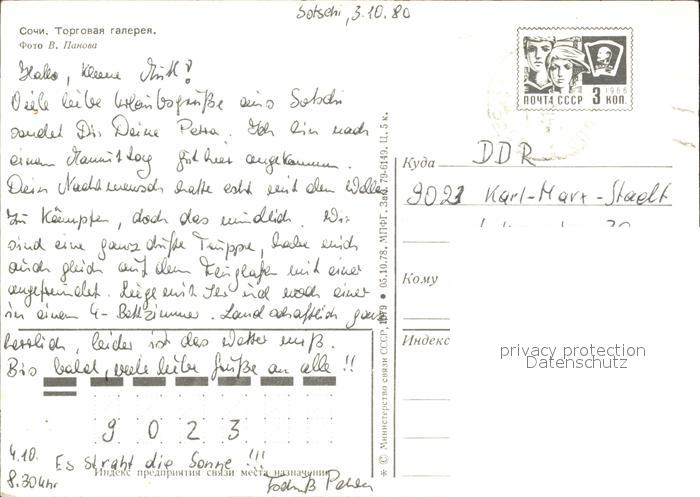 Sotschi, 3.10.80
Сочи. Торговая галерея.
Фото В. Панова
Hallo, kleine
Viele liebe Urlaubsgrüße aus Sotschi
sendet Dir Deine Petra. Ich bin nach
einem gut hier angekommen.
Dein hatte erst mit den Wellen
zu kämpfen, doch das mündlich. Wir
sind eine ganz dufte Truppe, habe mich
auch gleich auf dem Flughafen mit einer
angefreundet. Liege mit ihr und noch einer
in einem 4-Bettzimmer. Landschaftlich ganz
herrlich, leider ist das Wetter miß.
Bis bald, viele liebe Grüße an alle!!
9 0 2 3
4.10. Es strahlt die Sonne!!!
8.30 Uhr
Индекс предприятия связи места назначения
Petra
* © Министерство связи СССР, 1979 ● 05.10.78, МПФГ, Зак. 79-6149. Ц. 5 к.
1966
ПОЧТА СССР 3 КОП.
Куда DDR
9021 Karl-Marx-Stadt
Кому
Индекс
privacy protection
Datenschutz